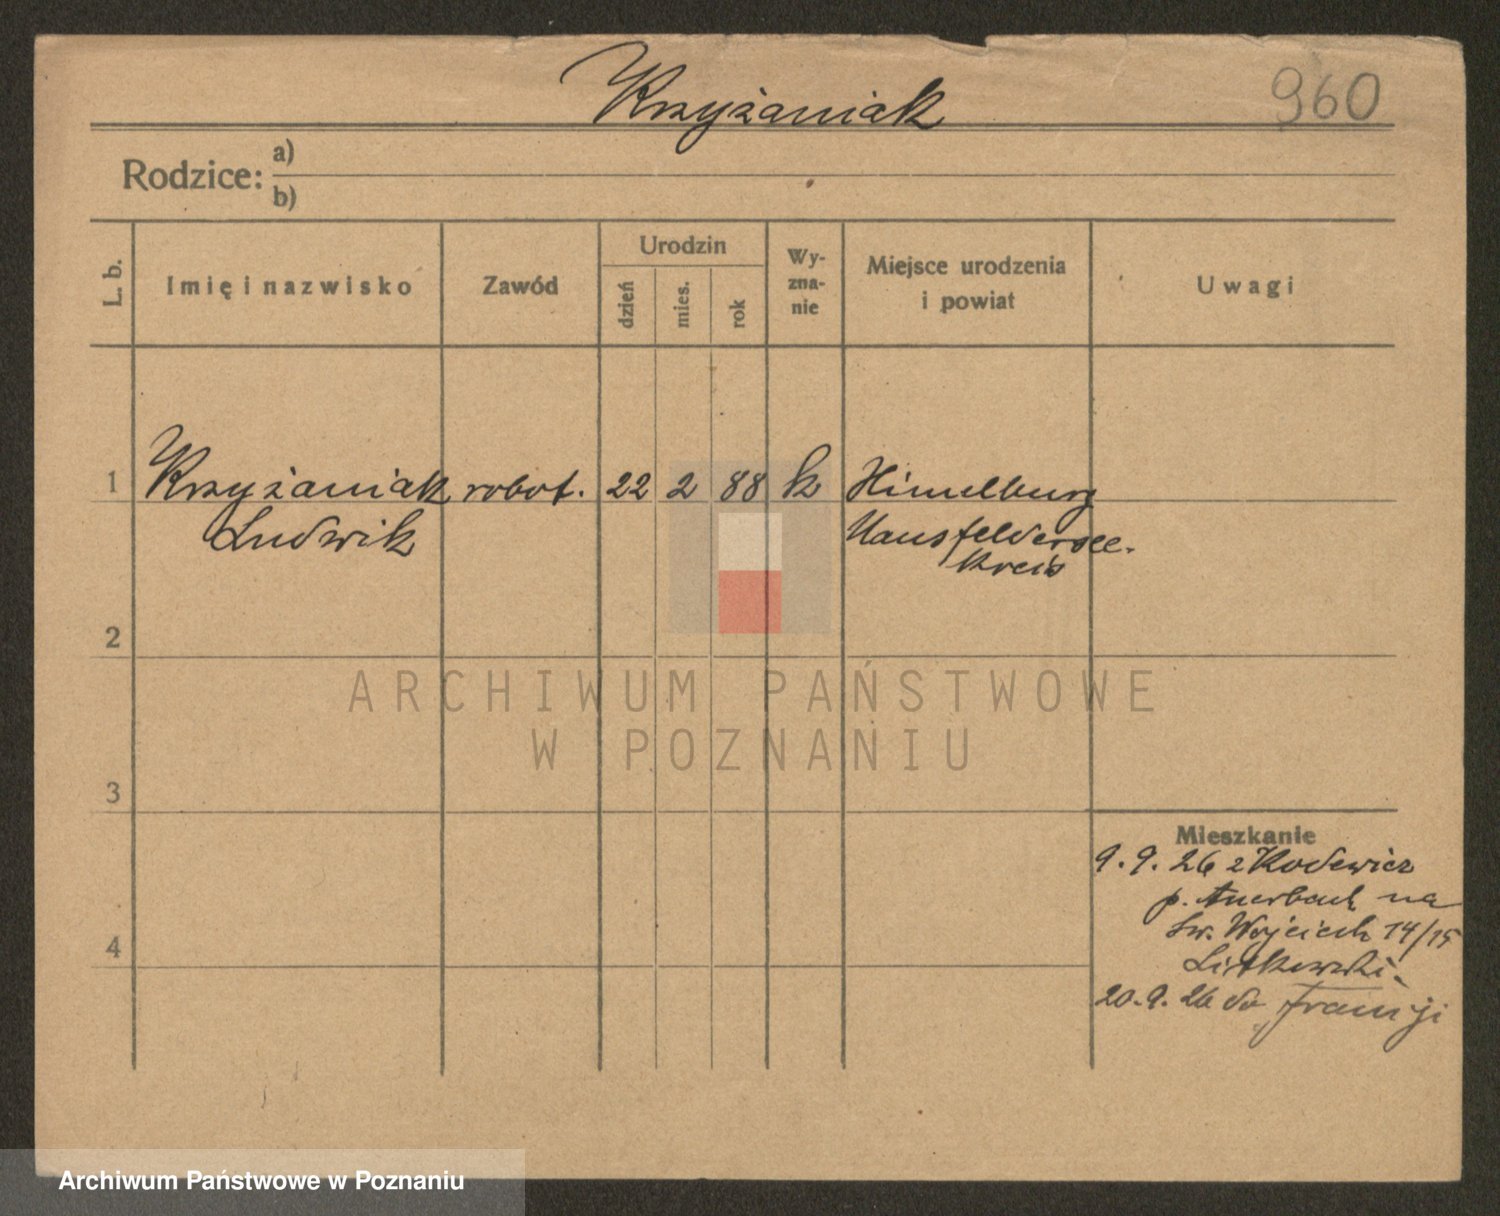 Krzyżaniak
960
Rodzice: a)
b)
L. b.
Imię i nazwisko
Zawód
Urodzin
dzień
mies.
rok
Wy-
zna-
nie
Miejsce urodzenia
i powiat
Uwagi
1 Krzyżaniak robot. 22 2 88 k Himelburg
Ludwik
Mansfeldersee.
Kreis
2
3
4
ARCHIWUM PAŃSTWOWE
W POZNANIU
Mieszkanie
9. 9. 26 z
p. Auerbach na
św. Wojciech 14/15
20. 9. 26 do Francji
Archiwum Państwowe w Poznaniu